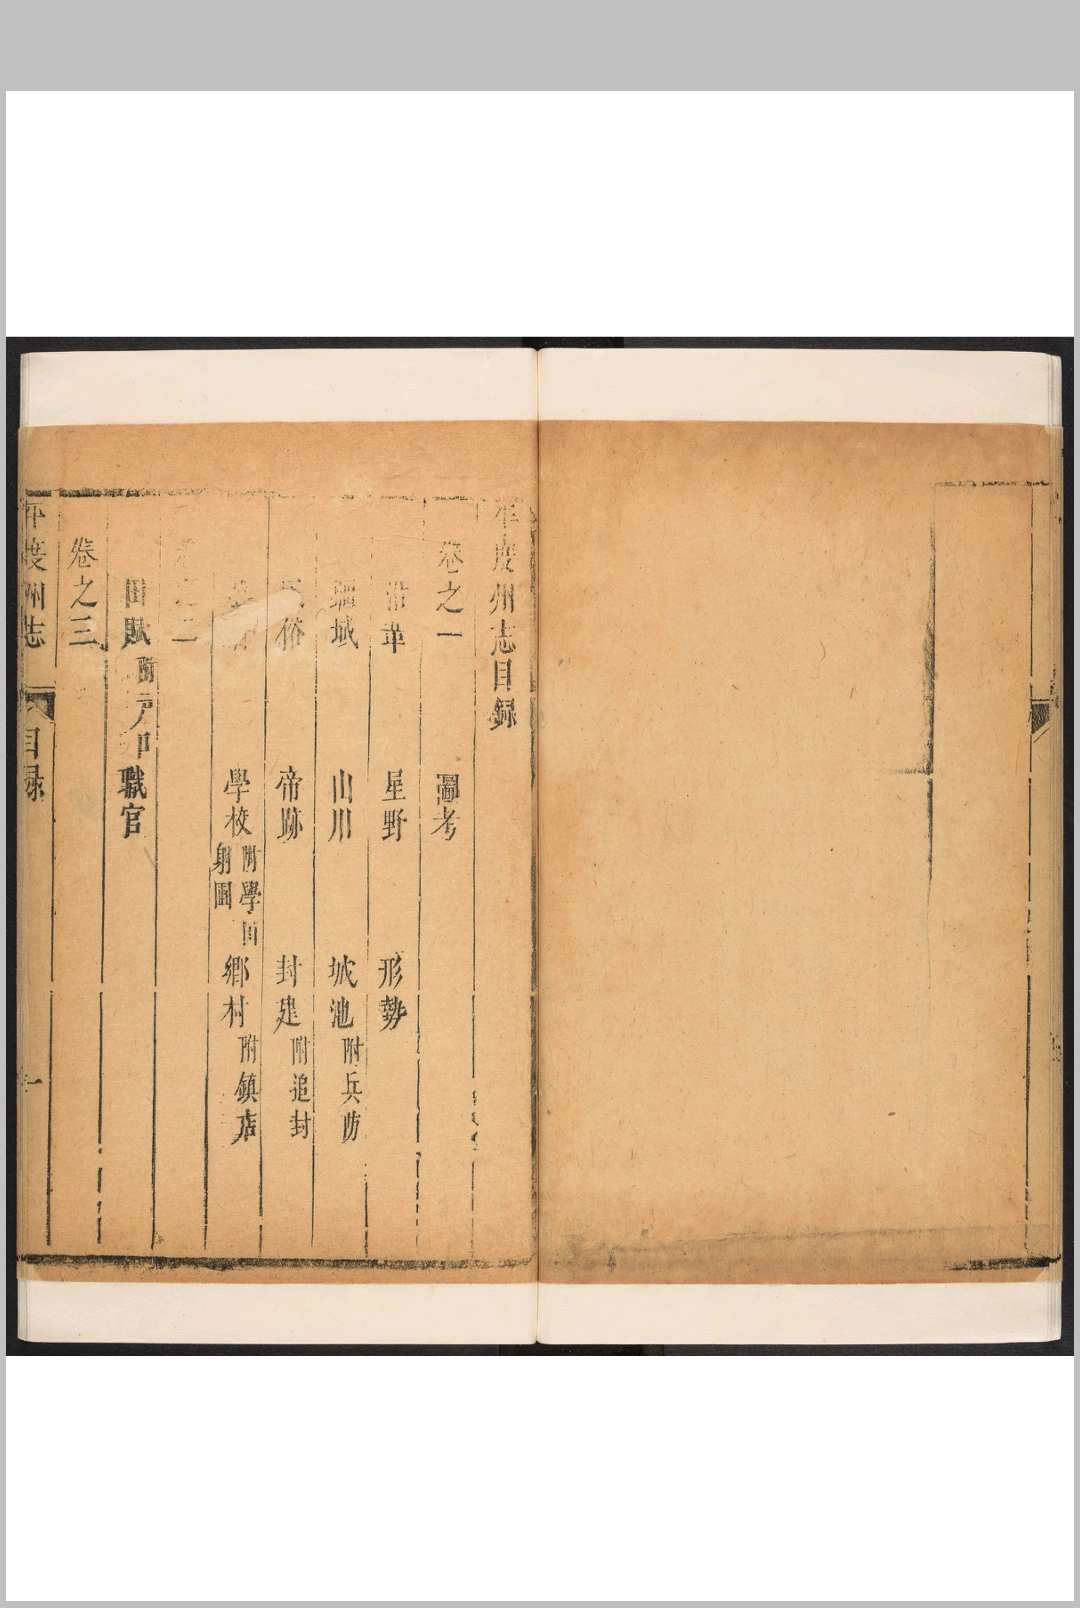 平度州志目録
卷之一
圖考
沿革 星野 形勢
疆域 山川 城池 附兵防
風俗 帝跡 封建 附追封
學校 附學田 射圃 鄉村 附鎮店
卷之二
田賦 附戶 職官
卷之三
平度州志 目録 一